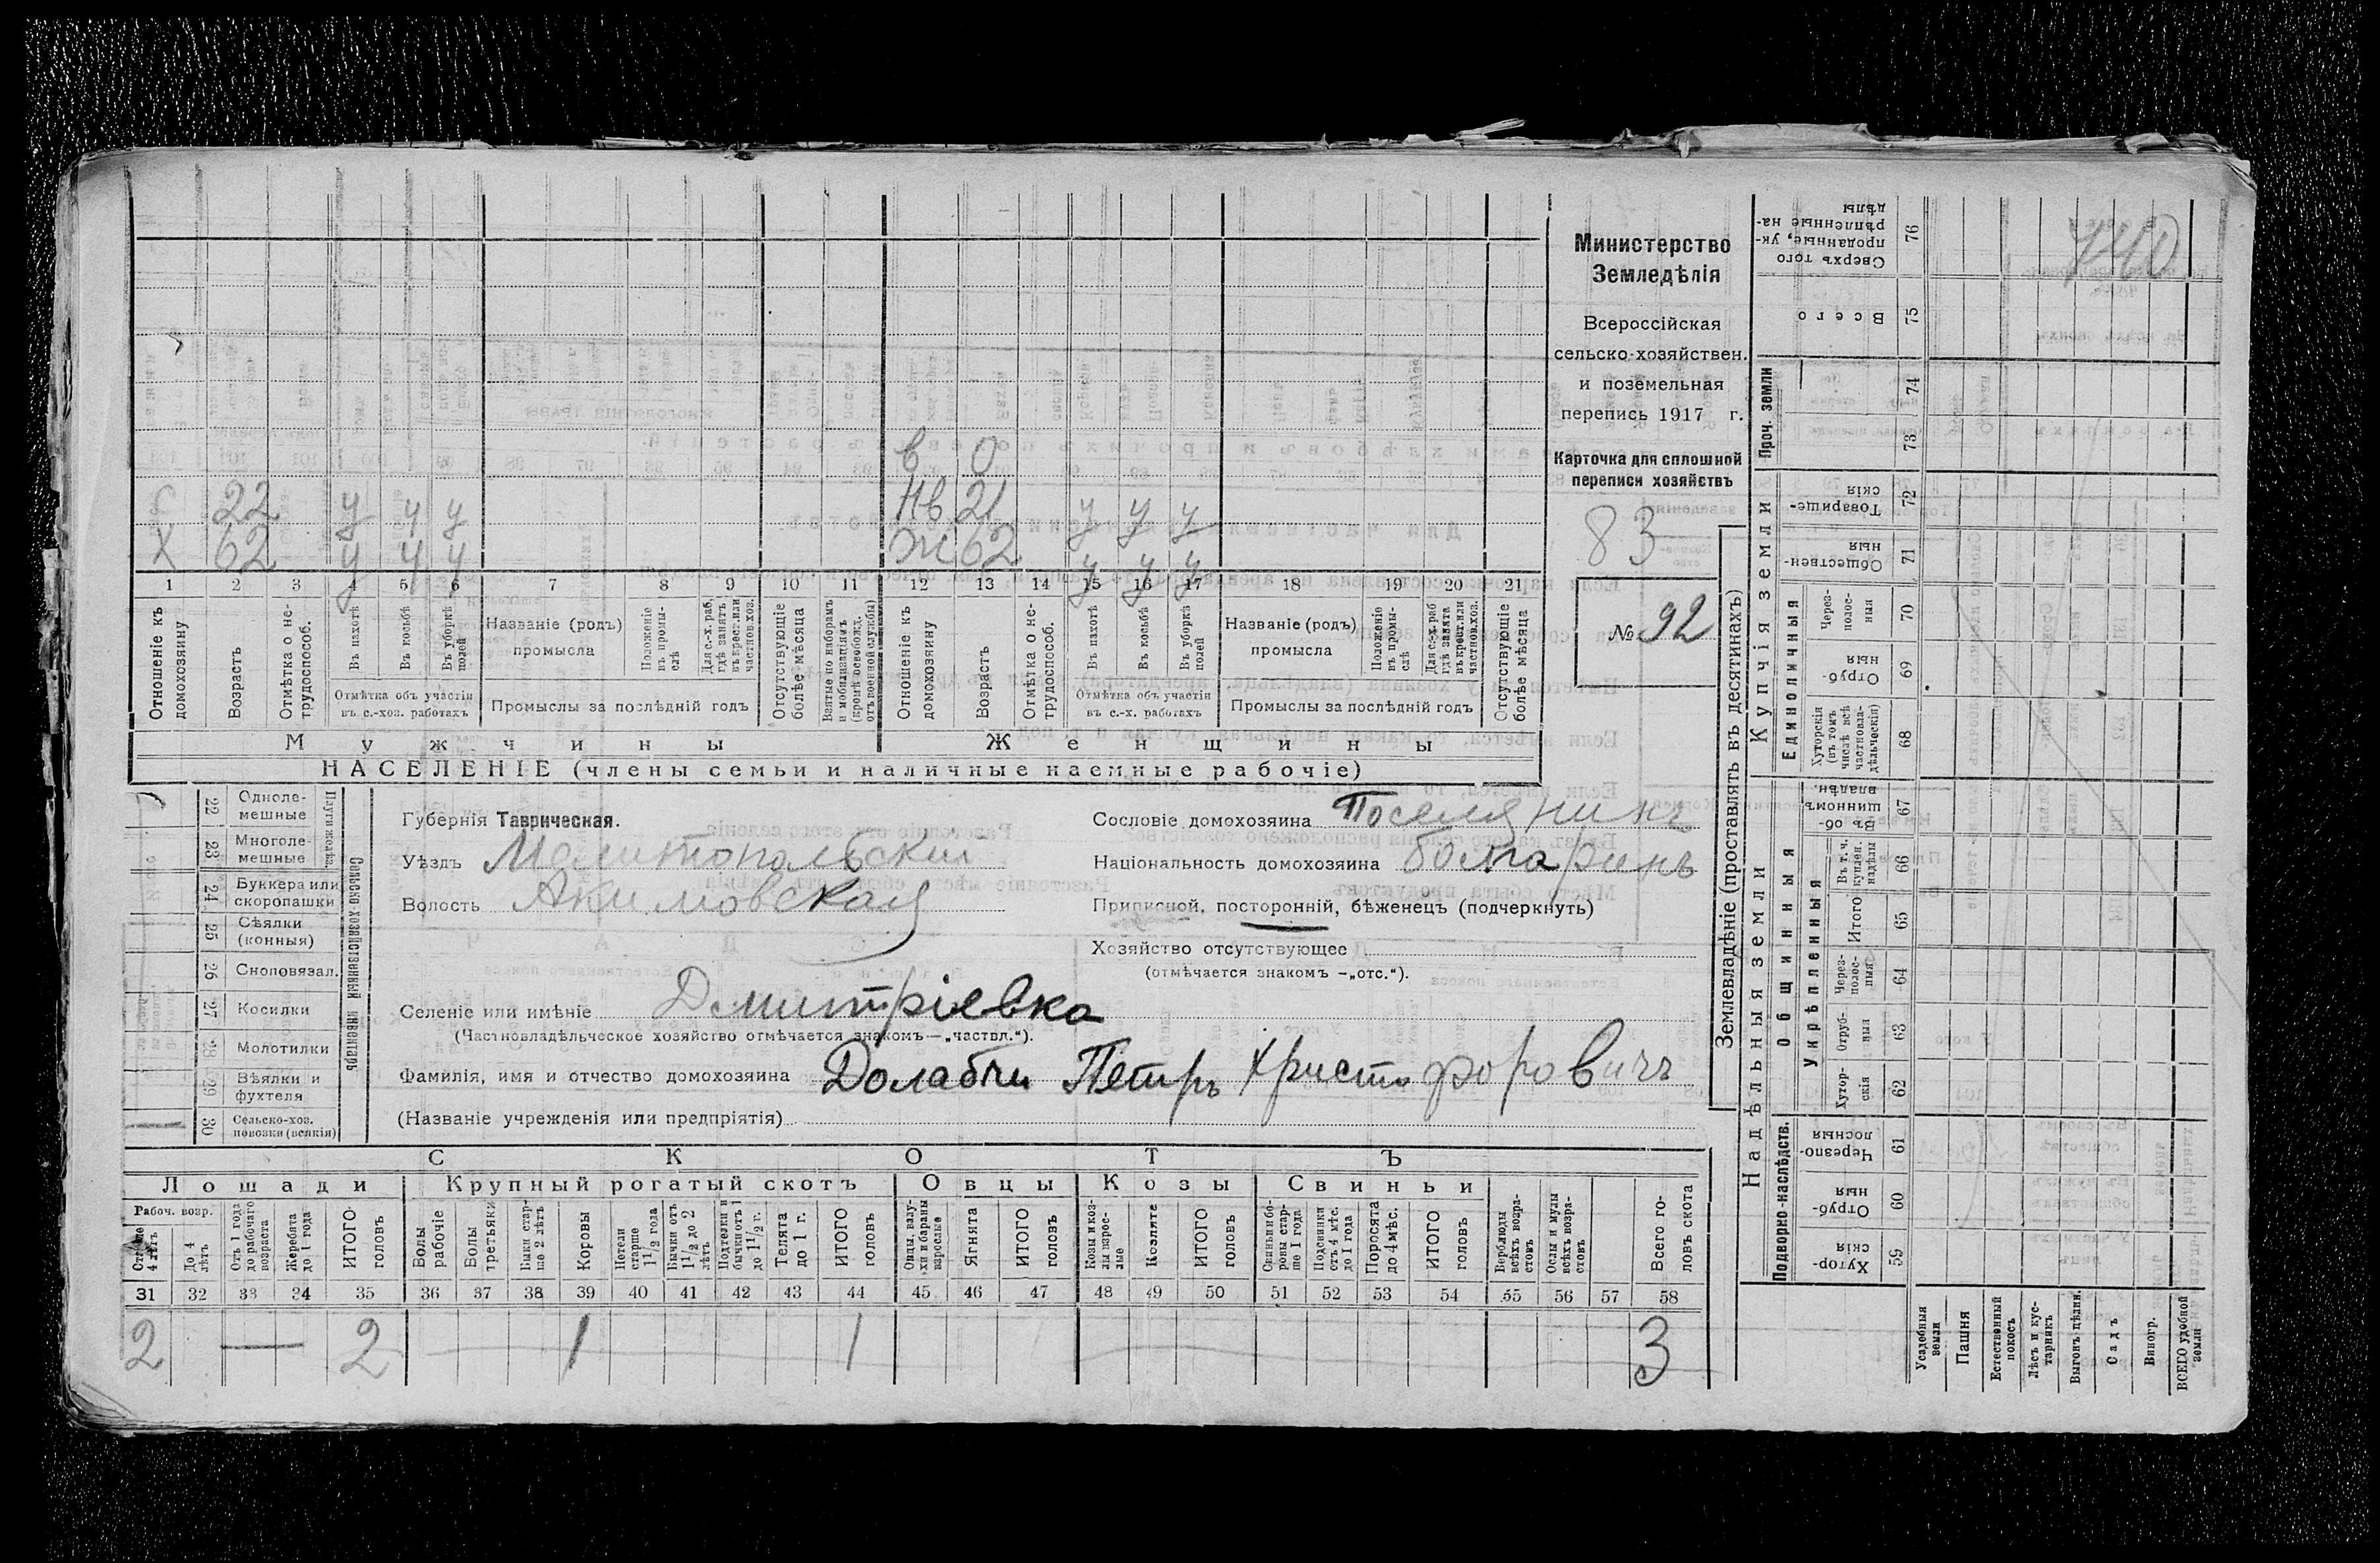 Министерство
Земледѣлія
Всероссійская
сельско-хозяйствен.
и поземельная
перепись 1917 г.
Карточка для сплошной
переписи хозяйствъ
83
№ 92
740
в 0
с 22 у у у нв 21 у у у
х 62 у у у ж 62 у у у
1 2 3 4 5 6 7 8 9 10 11 12 13 14 15 16 17 18 19 20 21
Отношеніе къ домохозяину
Возрастъ
Отмѣтка о не-трудоспособ.
Въ пахотѣ
Въ косьбѣ
Въ уборкѣ полей
Отмѣтка объ участіи въ с.-хоз. работахъ
Названіе (родъ) промысла
Положеніе въ промы-слѣ
Для с.-х. раб. гдѣ занятъ въ крест. или частнов. хоз.
Промыслы за послѣдній годъ
Отсутствующіе болѣе мѣсяца
Взятые по наборамъ и мобилизаціямъ (кромѣ освобожд. отъ военной службы)
Отношеніе къ домохозяину
Возрастъ
Отмѣтка о не-трудоспособ.
Въ пахотѣ
Въ косьбѣ
Въ уборкѣ полей
Отмѣтка объ участіи въ с.-х. работахъ
Названіе (родъ) промысла
Положеніе въ промы-слѣ
Для с.-х. раб. гдѣ занята въ крест. или частнов. хоз.
Промыслы за послѣдній годъ
Отсутствующіе болѣе мѣсяца
Мужчины Женщины
НАСЕЛЕНІЕ (члены семьи и наличные наемные рабочіе)
22 Одноле-мешные
23 Многоле-мешные
Плуги желѣз.
24 Буккера или скоропашки
25 Сѣялки (конныя)
26 Сноповязал.
27 Косилки
28 Молотилки
29 Вѣялки и фухтеля
30 Сельско-хоз. повозки (всякія)
Сельско-хозяйственный инвентарь
1
Губернія Таврическая.
Уѣздъ Мелитопольскій
Волость Акимовская
Сословіе домохозяина Поселянинъ
Національность домохозяина болгаринъ
Приписной, посторонній, бѣженецъ (подчеркнуть)
Хозяйство отсутствующее
(отмѣчается знакомъ —„отс.“).
Селеніе или имѣніе Дмитріевка
(Частновладѣльческое хозяйство отмѣчается знакомъ—„частвл.“).
Фамилія, имя и отчество домохозяина Долабчи Петръ Христофоровичъ
(Названіе учрежденія или предпріятія)
СКОТЪ
Лошади Крупный рогатый скотъ Овцы Козы Свиньи
Рабоч. возр.
Старше 4 лѣтъ
До 4 лѣтъ
Отъ 1 года до рабочаго возраста
Жеребята до 1 года
ИТОГО головъ
Волы рабочіе
Волы третьяки
Быки стар-ше 2 лѣтъ
Коровы
Нетели старше 1 1/2 года
Бычки отъ 1 1/2 до 2 лѣтъ
Подтелки и бычки отъ 1 до 1 1/2 г.
Телята до 1 г.
ИТОГО головъ
Овцы, валу-хи и бараны взрослые
Ягнята
ИТОГО головъ
Козы и коз-лы взрос-лые
Козлята
ИТОГО головъ
Свиньи и бо-ровы стар-ше 1 года
Подсвинки отъ 4 мѣс. до 1 года
Поросята до 4 мѣс.
ИТОГО головъ
Верблюды всѣхъ возра-стовъ
Ослы и мулы всѣхъ возра-стовъ
Всего го-ловъ скота
31 32 33 34 35 36 37 38 39 40 41 42 43 44 45 46 47 48 49 50 51 52 53 54 55 56 57 58
2 — 2 1 1 3
Землевладѣніе (проставлять въ десятинахъ)
Надѣльныя земли Купчія земли Проч. земли
Подворно-наслѣдств.
Общинныя
Укрѣпленныя
Единоличныя
Хутор-скія 59
Отруб-ныя 60
Черезпо-лосныя 61
Хутор-скія 62
Отруб-ныя 63
Через-полос-ныя 64
Итого 65
Въ т. ч. куплен. надѣлы 66
Въ об-щинномъ владѣн. 67
Хуторскія (въ томъ числѣ всѣ частновла-дѣльческія) 68
Отруб-ныя 69
Через-полос-ныя 70
Обществен-ныя 71
Товарище-скія 72
73
74
Всего 75
Сверхъ того проданные, ук-рѣпленные на-дѣлы 76
Усадебныя земли
Пашня
Естественный покосъ
Лѣсъ и кус-тарникъ
Выгонъ цѣлин.
Садъ
Виногр.
ВСЕГО удобной земли